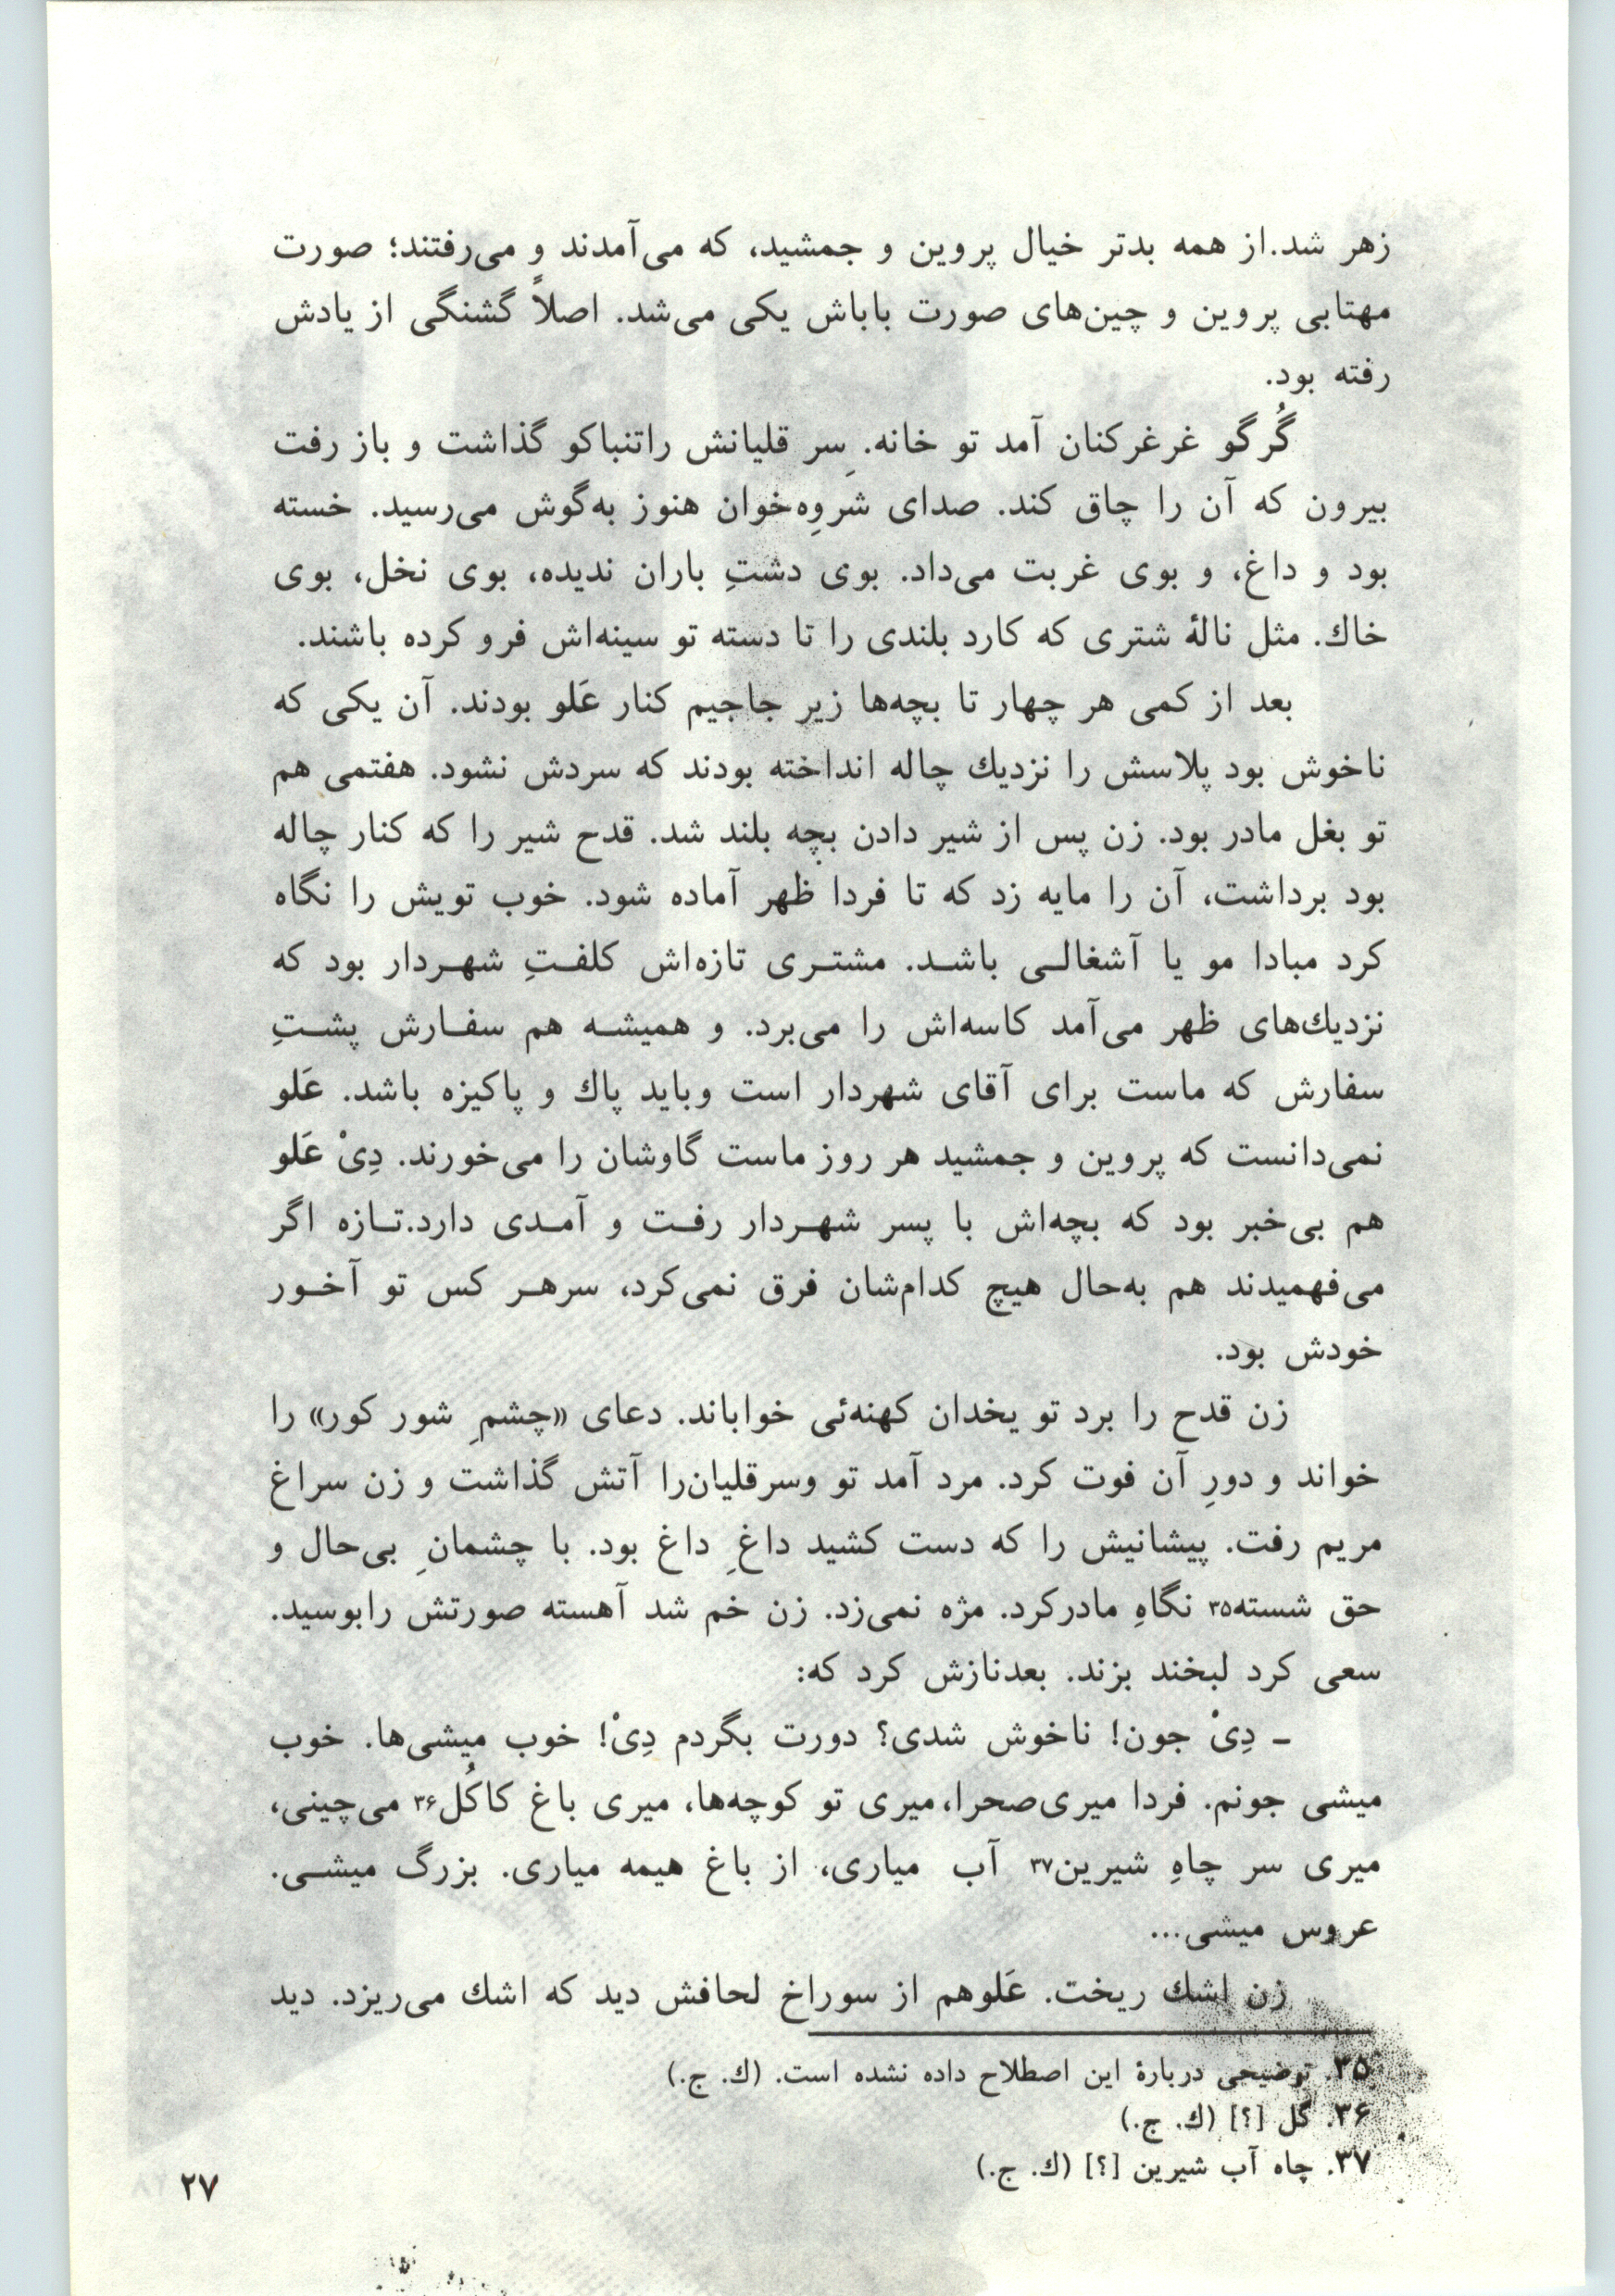 زهر شد.از همه بدتر خیال پروین و جمشید، که می‌آمدند و می‌رفتند؛ صورت
مهتابی پروین و چین‌های صورت باباش یکی می‌شد. اصلاً گشنگی از یادش
رفته بود.
گُرگو غرغرکنان آمد تو خانه. سِر قلیانش راتنباکو گذاشت و باز رفت
بیرون که آن را چاق کند. صدای شَروِه‌خوان هنوز به‌گوش می‌رسید. خسته
بود و داغ، و بوی غربت می‌داد. بوی دشتِ باران ندیده، بوی نخل، بوی
خاك. مثل نالهٔ شتری که کارد بلندی را تا دسته تو سینه‌اش فرو کرده باشند.
بعد از کمی هر چهار تا بچه‌ها زیر جاجیم کنار عَلو بودند. آن یکی که
ناخوش بود پلاسش را نزدیك چاله انداخته بودند که سردش نشود. هفتمی هم
تو بغل مادر بود. زن پس از شیر دادن بچه بلند شد. قدح شیر را که کنار چاله
بود برداشت، آن را مایه زد که تا فردا ظهر آماده شود. خوب تویش را نگاه
کرد مبادا مو یا آشغالی باشد. مشتری تازه‌اش کلفتِ شهردار بود که
نزدیك‌های ظهر می‌آمد کاسه‌اش را می‌برد. و همیشه هم سفارش پشتِ
سفارش که ماست برای آقای شهردار است وباید پاك و پاکیزه باشد. عَلو
نمی‌دانست که پروین و جمشید هر روز ماست گاوشان را می‌خورند. دِیْ عَلو
هم بی‌خبر بود که بچه‌اش با پسر شهردار رفت و آمدی دارد.تازه اگر
می‌فهمیدند هم به‌حال هیچ کدام‌شان فرق نمی‌کرد، سرهر کس تو آخور
خودش بود.
زن قدح را برد تو یخدان کهنه‌ئی خواباند. دعای «چشمِ شور کور» را
خواند و دورِ آن فوت کرد. مرد آمد تو وسرقلیان‌را آتش گذاشت و زن سراغ
مریم رفت. پیشانیش را که دست کشید داغِ داغ بود. با چشمانِ بی‌حال و
حق شسته۳۵ نگاهِ مادرکرد. مژه نمی‌زد. زن خم شد آهسته صورتش رابوسید.
سعی کرد لبخند بزند. بعدنازش کرد که:
ـ دِیْ جون! ناخوش شدی؟ دورت بگردم دِیْ! خوب میشی‌ها. خوب
میشی جونم. فردا میری‌صحرا، میری تو کوچه‌ها، میری باغ کاکُل۳۶ می‌چینی،
میری سر چاهِ شیرین۳۷ آب میاری، از باغ هیمه میاری. بزرگ میشی.
عروس میشی...
زن اشك ریخت. عَلوهم از سوراخ لحافش دید که اشك می‌ریزد. دید
۳۵. توضیحی دربارهٔ این اصطلاح داده نشده است. (ك. ج.)
۳۶. گل [؟] (ك. ج.)
۳۷. چاه آب شیرین [؟] (ك. ج.)
۲۷